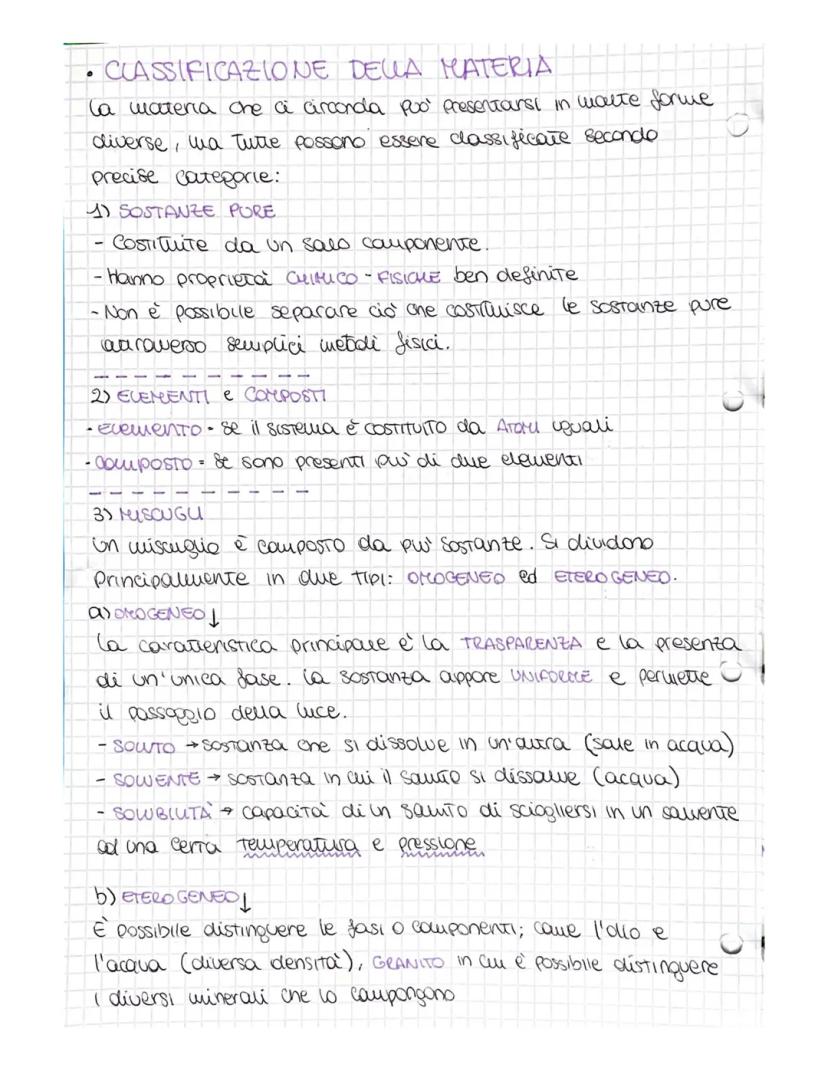 • CLASSIFICAZIONE DELLA MATERIA
La materia che ci circonda può presentarsi in molte forme
diverse, ma tutte possono essere classificate secondo
precise categorie:
1) SOSTANZE PURE
- Costituite da un solo componente.
- Hanno proprietà CHIMICO-FISICHE ben definite
- Non è possibile separare ciò che costituisce le sostanze pure
attraverso semplici metodi fisici.
2) ELEMENTI e COMPOSTI
- ELEMENTO = se il sistema è costituito da ATOMI uguali
- COMPOSTO = se sono presenti più di due elementi
3) MISCUGLI
Un miscuglio è composto da più sostanze. Si dividono
principalmente in due tipi: OMOGENEO ed ETEROGENEO.
a) OMOGENEO ↓
La caratteristica principale è la TRASPARENZA e la presenza
di un'unica fase. La sostanza appare UNIFORME e permette
il passaggio della luce.
- SOLUTO → sostanza che si dissolve in un'altra (sale in acqua)
- SOLVENTE → sostanza in cui il soluto si dissolve (acqua)
- SOLUBILITÀ → capacità di un soluto di sciogliersi in un solvente
ad una certa temperatura e pressione
b) ETEROGENEO ↓
È possibile distinguere le fasi o componenti; come l'olio e
l'acqua (diversa densità), GRANITO in cui è possibile distinguere
i diversi minerali che lo compongono